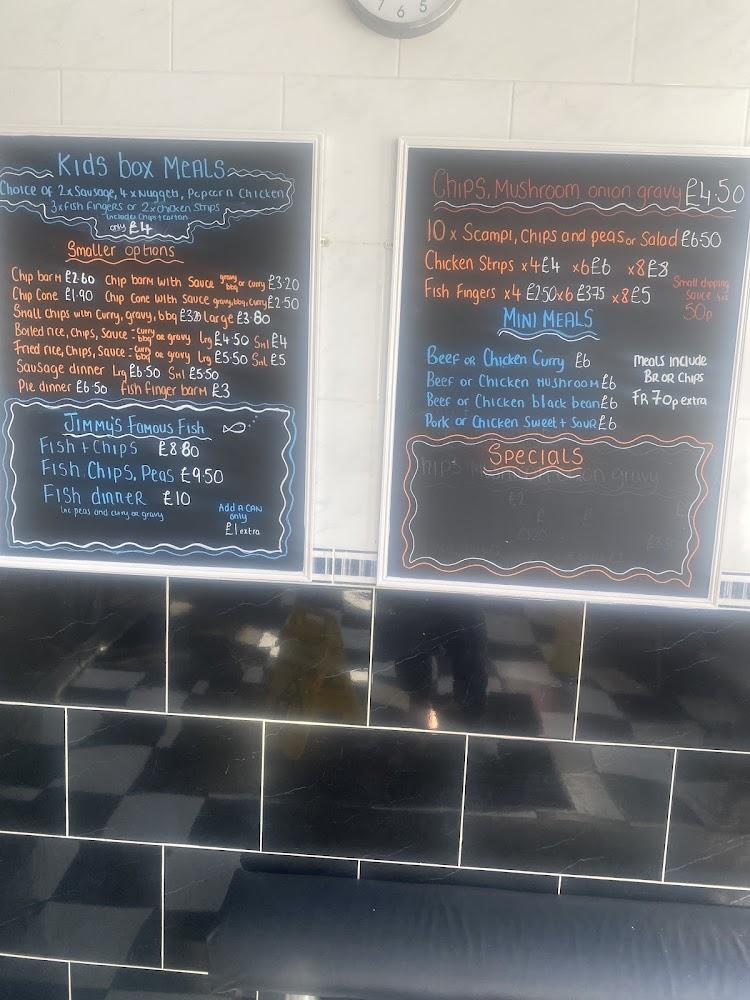 7 6 5
Kids box Meals
Choice of 2xSausage, 4xNuggets, Popcorn Chicken
3xfish fingers or 2xchicken strips
includes chips + carton
only £4
Smaller options
Chip barm £2.60 Chip barm with Sauce gravy bbq or curry £3.20
Chip Cone £1.90 Chip Cone with Sauce gravy, bbq, curry £2.50
Small chips with Curry, gravy, bbq Large £3.80
Boiled rice, Chips, Sauce - curry bbq or gravy Lrg £4.50 Sml £4
Fried rice, Chips, Sauce - curry bbq or gravy Lrg £5.50 Sml £5
Sausage dinner Lrg £6.50 Sml £5.50
Pie dinner £6.50 Fish finger barm £3
Jimmy's Famous Fish
Fish + Chips £8.80
Fish Chips, Peas £9.50
Fish dinner £10
Inc peas and curry or gravy
Add a CAN
only
£1 extra
Chips, Mushroom onion gravy £4.50
10 x Scampi, Chips and peas or Salad £6.50
Chicken Strips x4 £4 x6 £6 x8 £8
Fish Fingers x4 £2.50 x6 £3.75 x8 £5
Small dipping
Sauce
50p
Mini Meals
Beef or Chicken Curry £6
Beef or Chicken Mushroom £6
Beef or Chicken black bean £6
Pork or Chicken Sweet + Sour £6
Meals include
BR or Chips
FR 70p extra
Specials
hips Mushroom onion gravy
£2
£